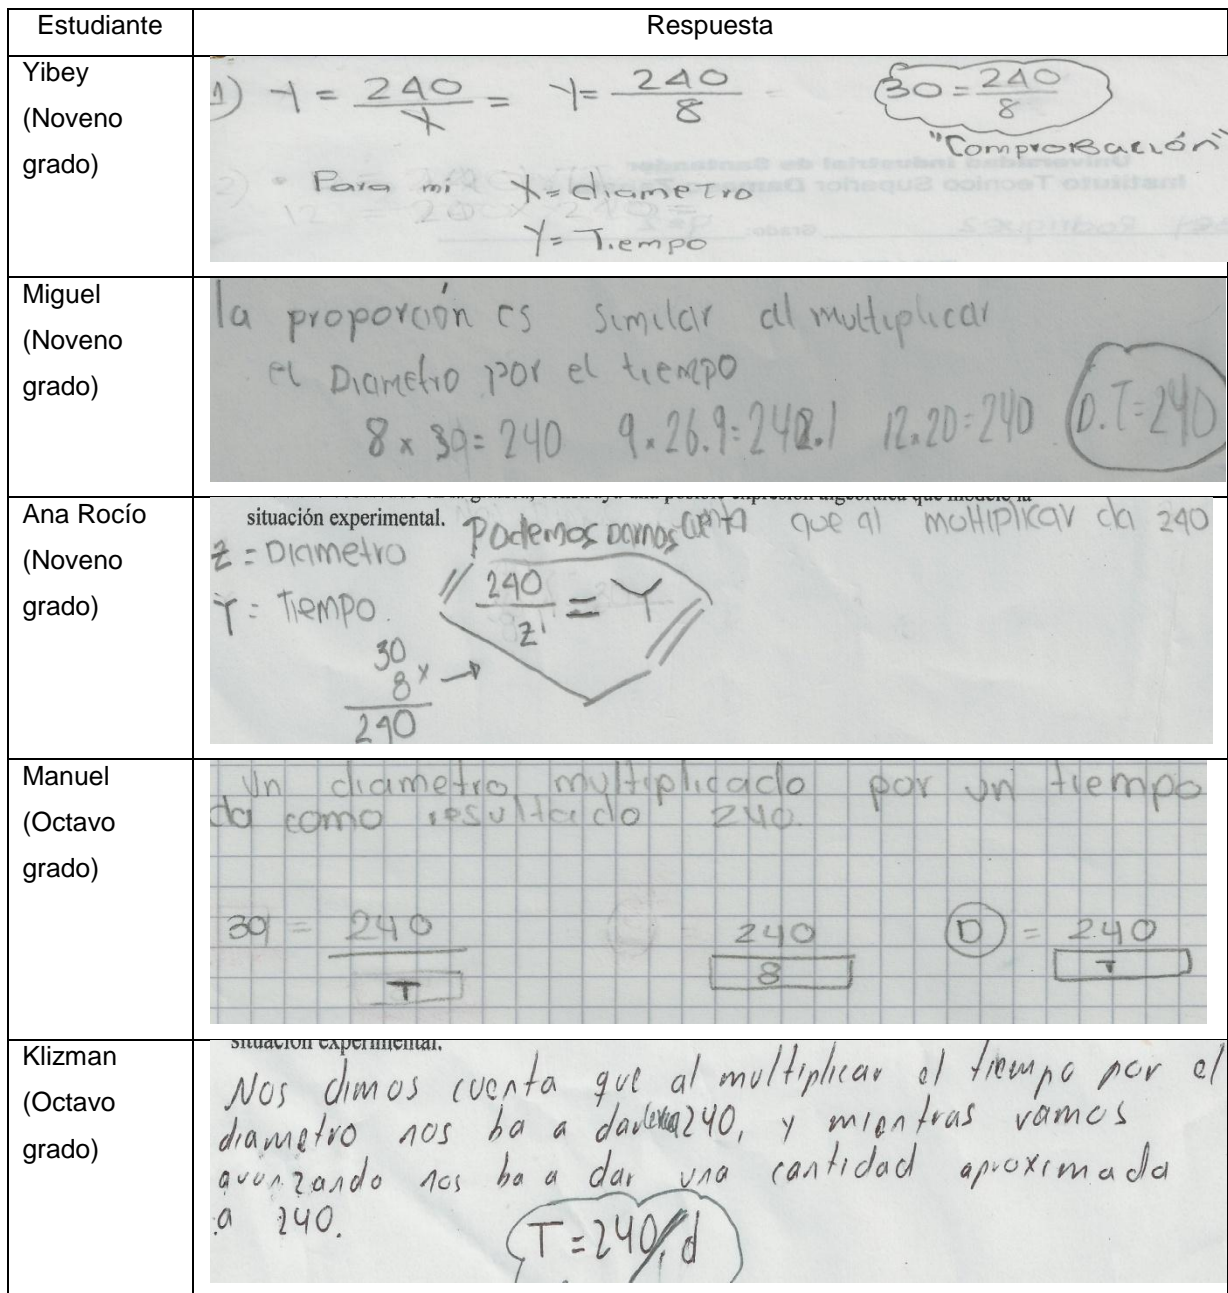 Estudiante Respuesta
Yibey
(Noveno
grado)
1) Y = 240/X = Y = 240/8 30 = 240/8
"Comprobación"
Para mi X = diametro
Y = Tiempo
Miguel
(Noveno
grado)
la proporción es similar al multiplicar
el Diametro por el tiempo
8 x 30 = 240 9 x 26.9 = 242.1 12.20 = 240 D.T = 240
Ana Rocío
(Noveno
grado)
situación experimental. Podemos darnos cuenta que al multiplicar da 240
Z = Diametro
Y = Tiempo. 240/Z = Y
30
8 x →
240
Manuel
(Octavo
grado)
Un diametro multiplicado por un tiempo
da como resultado 240.
30 = 240/T 240/8 D = 240/T
Klizman
(Octavo
grado)
situación experimental.
Nos dimos cuenta que al multiplicar el tiempo por el
diametro nos ba a dar 240, y mientras vamos
avanzando nos ba a dar una cantidad aproximada
a 240.
T = 240/d